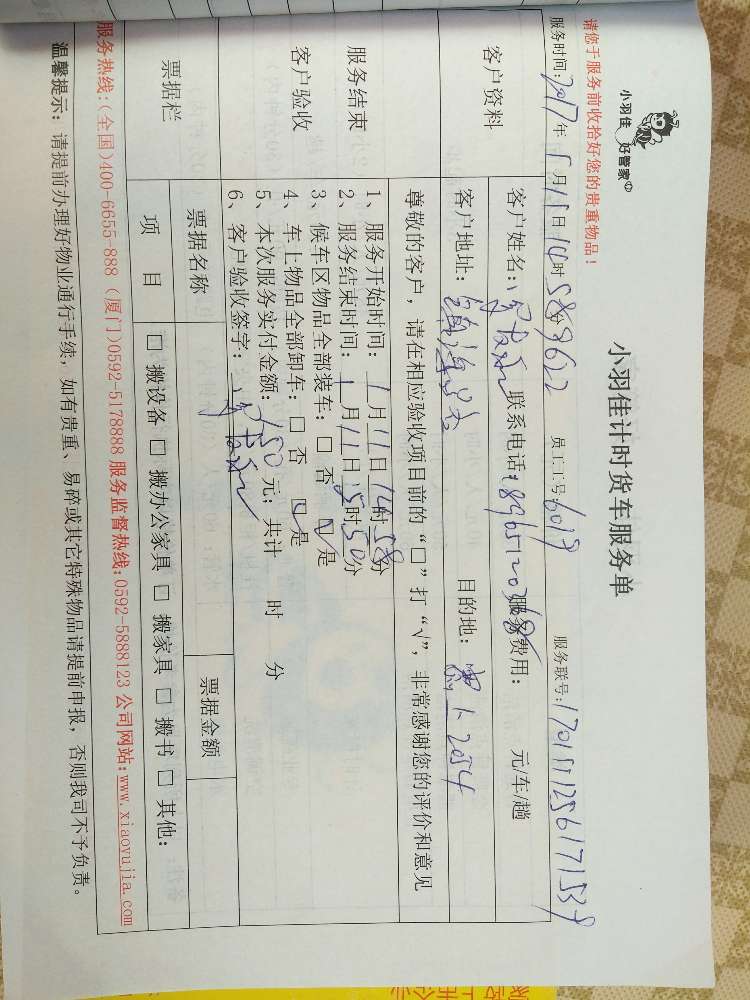 小羽佳 好管家
小羽佳计时货车服务单
请您于服务前收拾好您的贵重物品！
服务时间：2017年 月11日14时58分8622 员工工号：6019 服务联号：
客户资料
客户姓名： 联系电话： 服务费用： 元/车/趟
客户地址： 目的地：
尊敬的客户，请在相应验收项目前的“□”打“√”，非常感谢您的评价和意见
服务结束
客户验收
1、服务开始时间：1月11日14时58分
2、服务结束时间：1月11日15时50分
3、候车区物品全部装车：□ 否 ☑是
4、车上物品全部卸车：□ 否 ☑是
5、本次服务实付金额：150元；共计 时 分
6、客户验收签字：
票据栏
票据名称 票据金额
项 目 □ 搬设备 □ 搬办公家具 □ 搬家具 □ 搬书 □ 其他：
服务热线：(全国)400-6655-888 (厦门)0592-5178888 服务监督热线：0592-5888123 公司网站：www.xiaoyujia.com
温馨提示：请提前办理好物业通行手续，如有贵重、易碎或其它特殊物品请提前申报，否则我司不予负责。